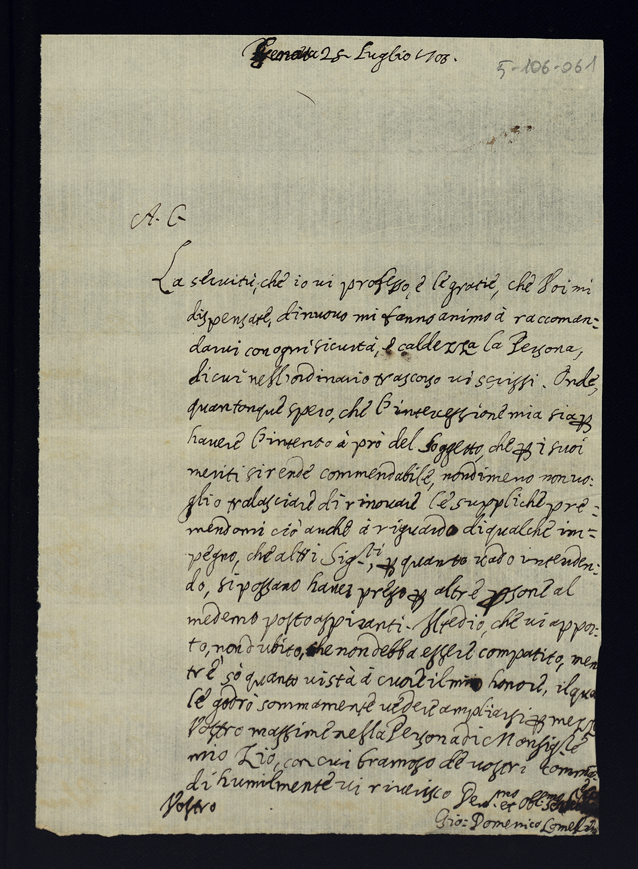 Genova 25 Luglio 1708.
5-106-061
A. C.
La servitù, che io vi professo, e le gratie, che Voi mi
dispensate, di nuovo mi fanno animo à raccoman=
darvi con ogni sicurtà, e caldezza la Persona,
di cui nell'ordinario trascorso vi scrissi. Onde,
quantonque spero, che l'intercessione mia sia ꝑ
havere l'intento à prò del soggetto, che ꝑ i suoi
meriti si rende commendabile, nondimeno non vo=
glio tralasciare di rinovare le suppliche pre=
mendomi ciò anche à riguardo di qualche im=
pegno, che altri Sig.ri, ꝑ quanto vado intenden=
do, si possano haver preso ꝑ altre ꝑsone al
medemo posto aspiranti. Il tedio, che vi appor=
to, non dubito, che non debba essere compatito, men
tre sò quanto vi stà à cuore il mio honore, il qua
le godrò sommamente vedere ampliarsi ꝑ mezzo
Vostro massime nella Persona di Monsig.re
mio Zio, con cui bramoso de vostri comman
di humilmente vi riverisco
Vostro
Dev.mo et Obl.mo
Gio: Domenico Lomellin